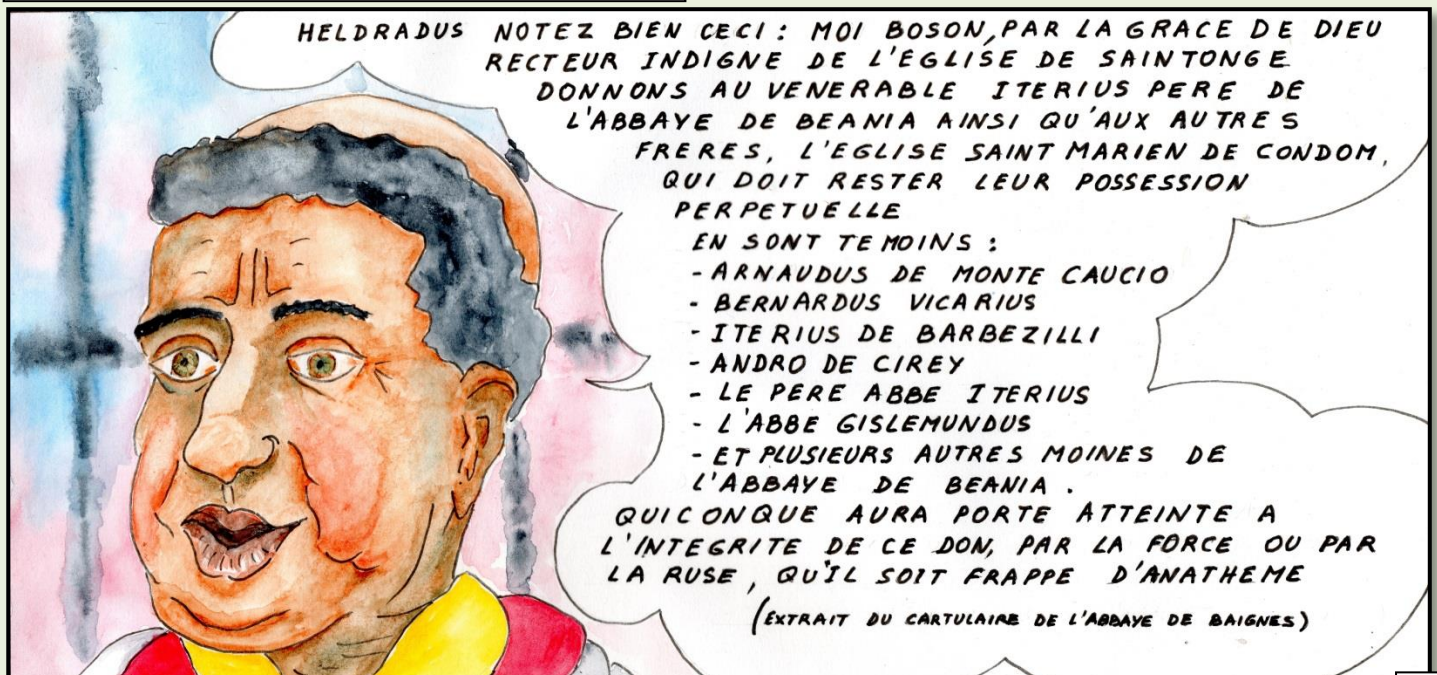 HELDRADUS NOTEZ BIEN CECI : MOI BOSON, PAR LA GRACE DE DIEU
RECTEUR INDIGNE DE L'EGLISE DE SAINTONGE
DONNONS AU VENERABLE ITERIUS PERE DE
L'ABBAYE DE BEANIA AINSI QU'AUX AUTRES
FRERES, L'EGLISE SAINT MARIEN DE CONDOM,
QUI DOIT RESTER LEUR POSSESSION
PERPETUELLE
EN SONT TEMOINS :
- ARNAUDUS DE MONTE CAUCIO
- BERNARDUS VICARIUS
- ITERIUS DE BARBEZILLI
- ANDRO DE CIREY
- LE PERE ABBE ITERIUS
- L'ABBE GISLEMUNDUS
- ET PLUSIEURS AUTRES MOINES DE
L'ABBAYE DE BEANIA .
QUICONQUE AURA PORTE ATTEINTE A
L'INTEGRITE DE CE DON, PAR LA FORCE OU PAR
LA RUSE, QU'IL SOIT FRAPPE D'ANATHEME
(EXTRAIT DU CARTULAIRE DE L'ABBAYE DE BAIGNES)